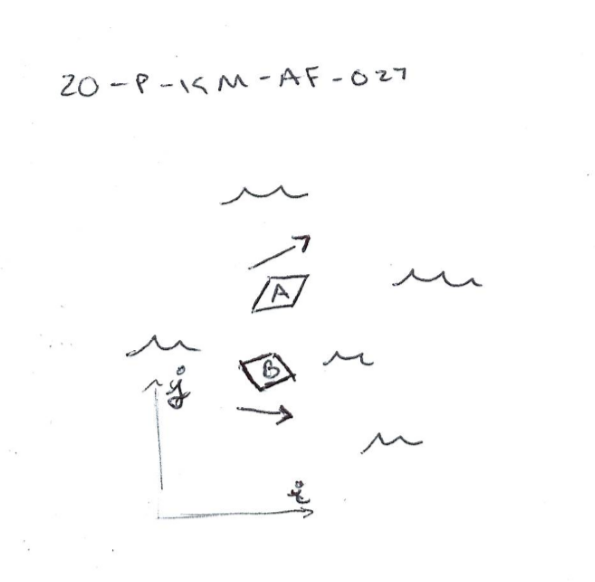 20-P-KM-AF-027
A
B
j
i